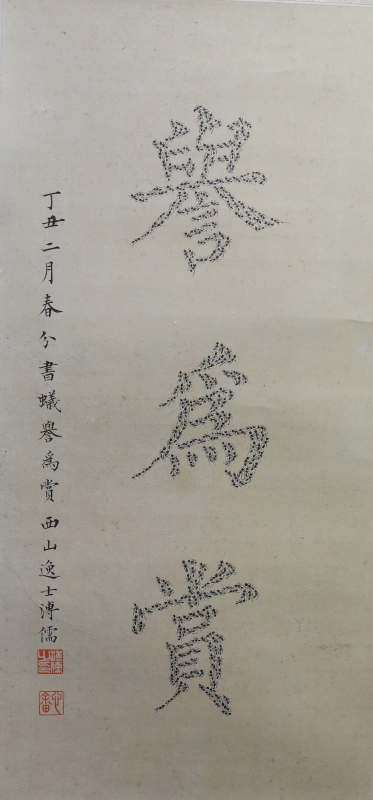 譽爲賞
丁丑二月春分書蟻譽爲賞 西山逸士溥儒